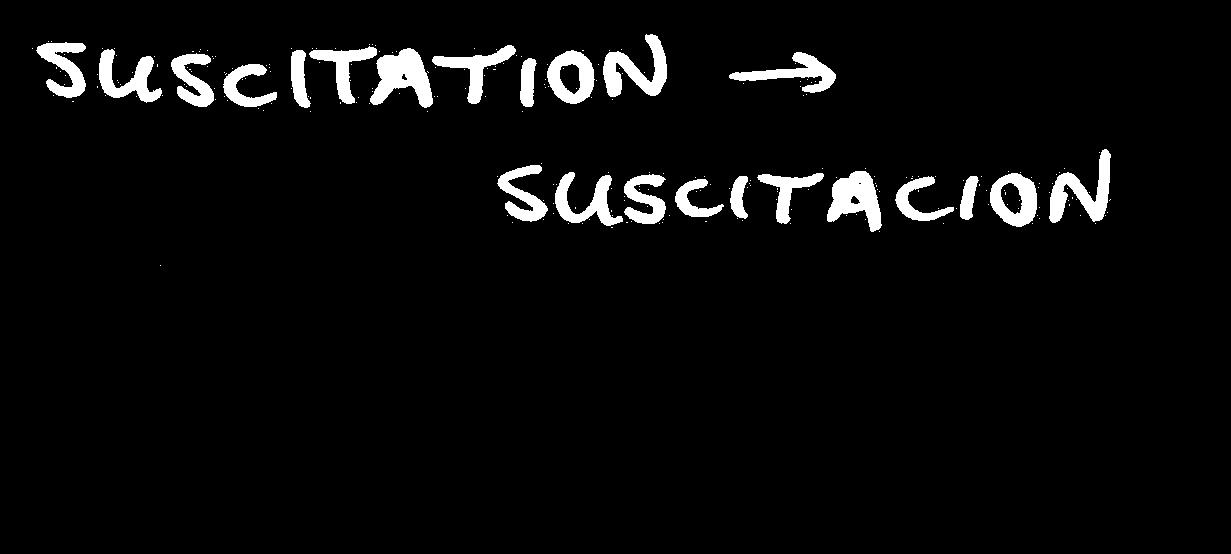 SUSCITATION →
SUSCITACION